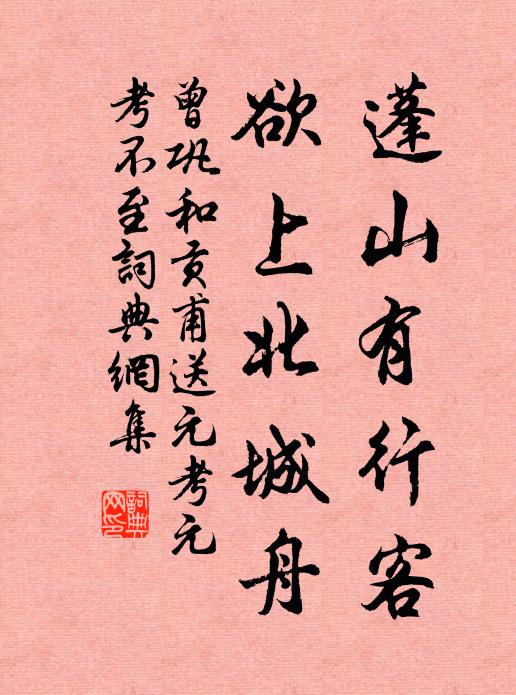 蓬山有行客
欲上北城舟
曾巩和贡甫送元考元
考不至詞典網集
詞典
网印